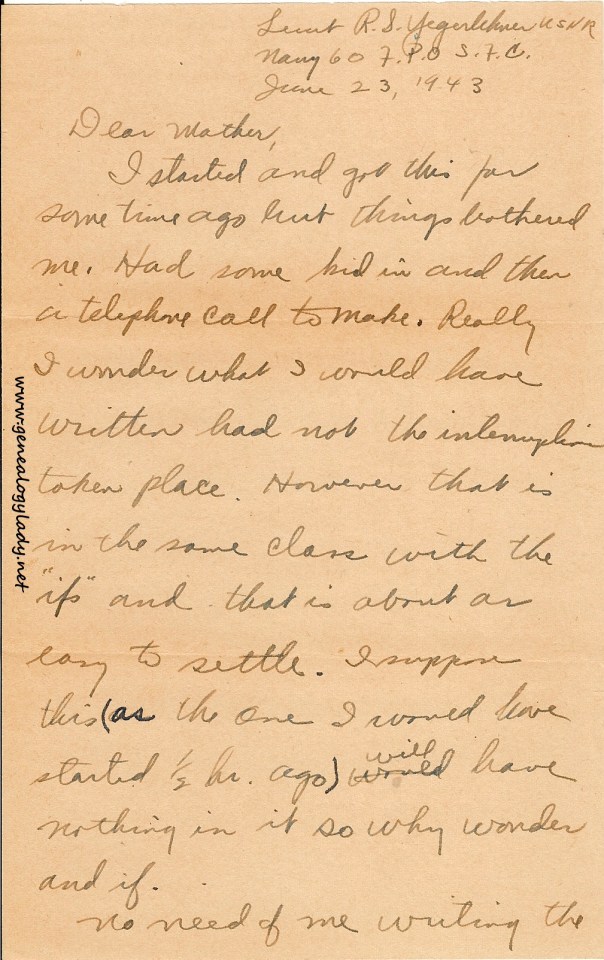 Lieut R.S. Yegerlehner USNR
Navy 60 F.P.O S.F.C.
June 23, 1943
Dear Mother,
I started and got this far
some time ago but things bothered
me. Had some kid in and then
a telephone call to make. Really
I wonder what I would have
written had not the interruption
taken place. However that is
in the same class with the
"ifs" and that is about as
easy to settle. I suppose
this (as the one I would have
started ½ hr. ago) would will have
nothing in it so why wonder
and if.
No need of me writing the
www.genealogylady.net